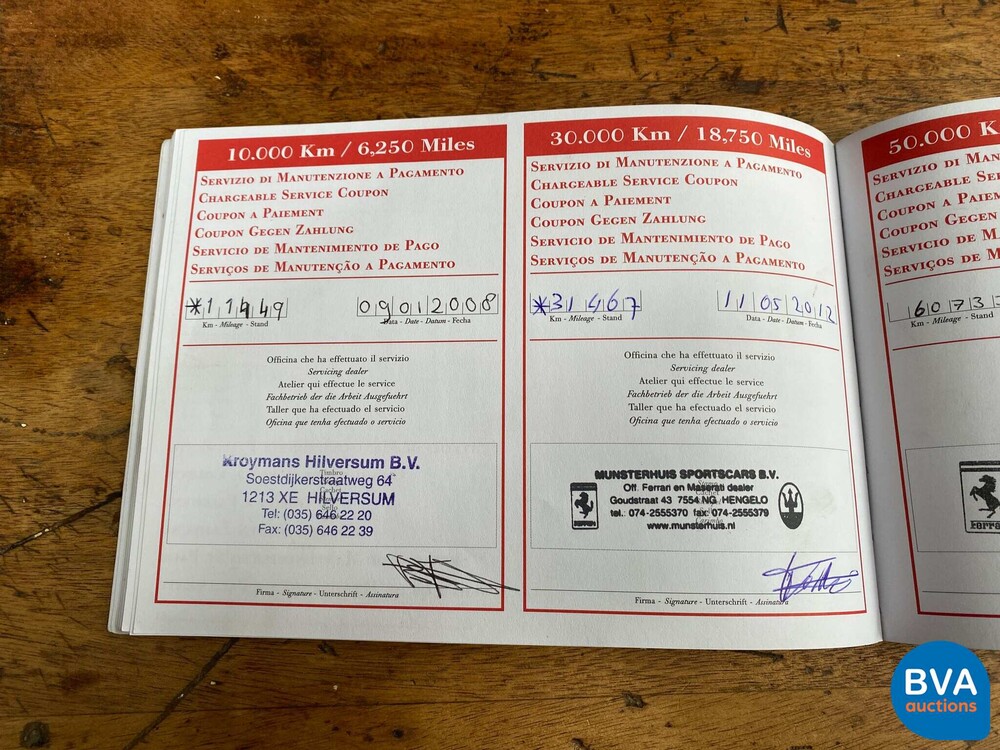 10.000 Km / 6,250 Miles
Servizio di Manutenzione a Pagamento
Chargeable Service Coupon
Coupon a Paiement
Coupon Gegen Zahlung
Servicio de Mantenimiento de Pago
Serviços de Manutenção a Pagamento
*11449
09012008
Km - Mileage - Stand
Data - Date - Datum - Fecha
Officina che ha effettuato il servizio
Servicing dealer
Atelier qui effectue le service
Fachbetrieb der die Arbeit Ausgefuehrt
Taller que ha efectuado el servicio
Oficina que tenha efectuado o servicio
Kroymans Hilversum B.V.
Soestdijkerstraatweg 64
1213 XE HILVERSUM
Tel: (035) 646 22 20
Fax: (035) 646 22 39
Firma - Signature - Unterschrift - Assinatura
30.000 Km / 18,750 Miles
Servizio di Manutenzione a Pagamento
Chargeable Service Coupon
Coupon a Paiement
Coupon Gegen Zahlung
Servicio de Mantenimiento de Pago
Serviços de Manutenção a Pagamento
*31467
11052012
Km - Mileage - Stand
Data - Date - Datum - Fecha
Officina che ha effettuato il servizio
Servicing dealer
Atelier qui effectue le service
Fachbetrieb der die Arbeit Ausgefuehrt
Taller que ha efectuado el servicio
Oficina que tenha efectuado o servicio
MUNSTERHUIS SPORTSCARS B.V.
Off. Ferrari en Maserati dealer
Goudstraat 43 7554 NG HENGELO
tel.: 074-2555370 fax: 074-2555379
www.munsterhuis.nl
Firma - Signature - Unterschrift - Assinatura
50.000 K
Servizio di Man
Chargeable Ser
Coupon a Paiem
Coupon Gegen
Servicio de M
Serviços de M
6073
Km - Mileage - Stand
BVA
auctions